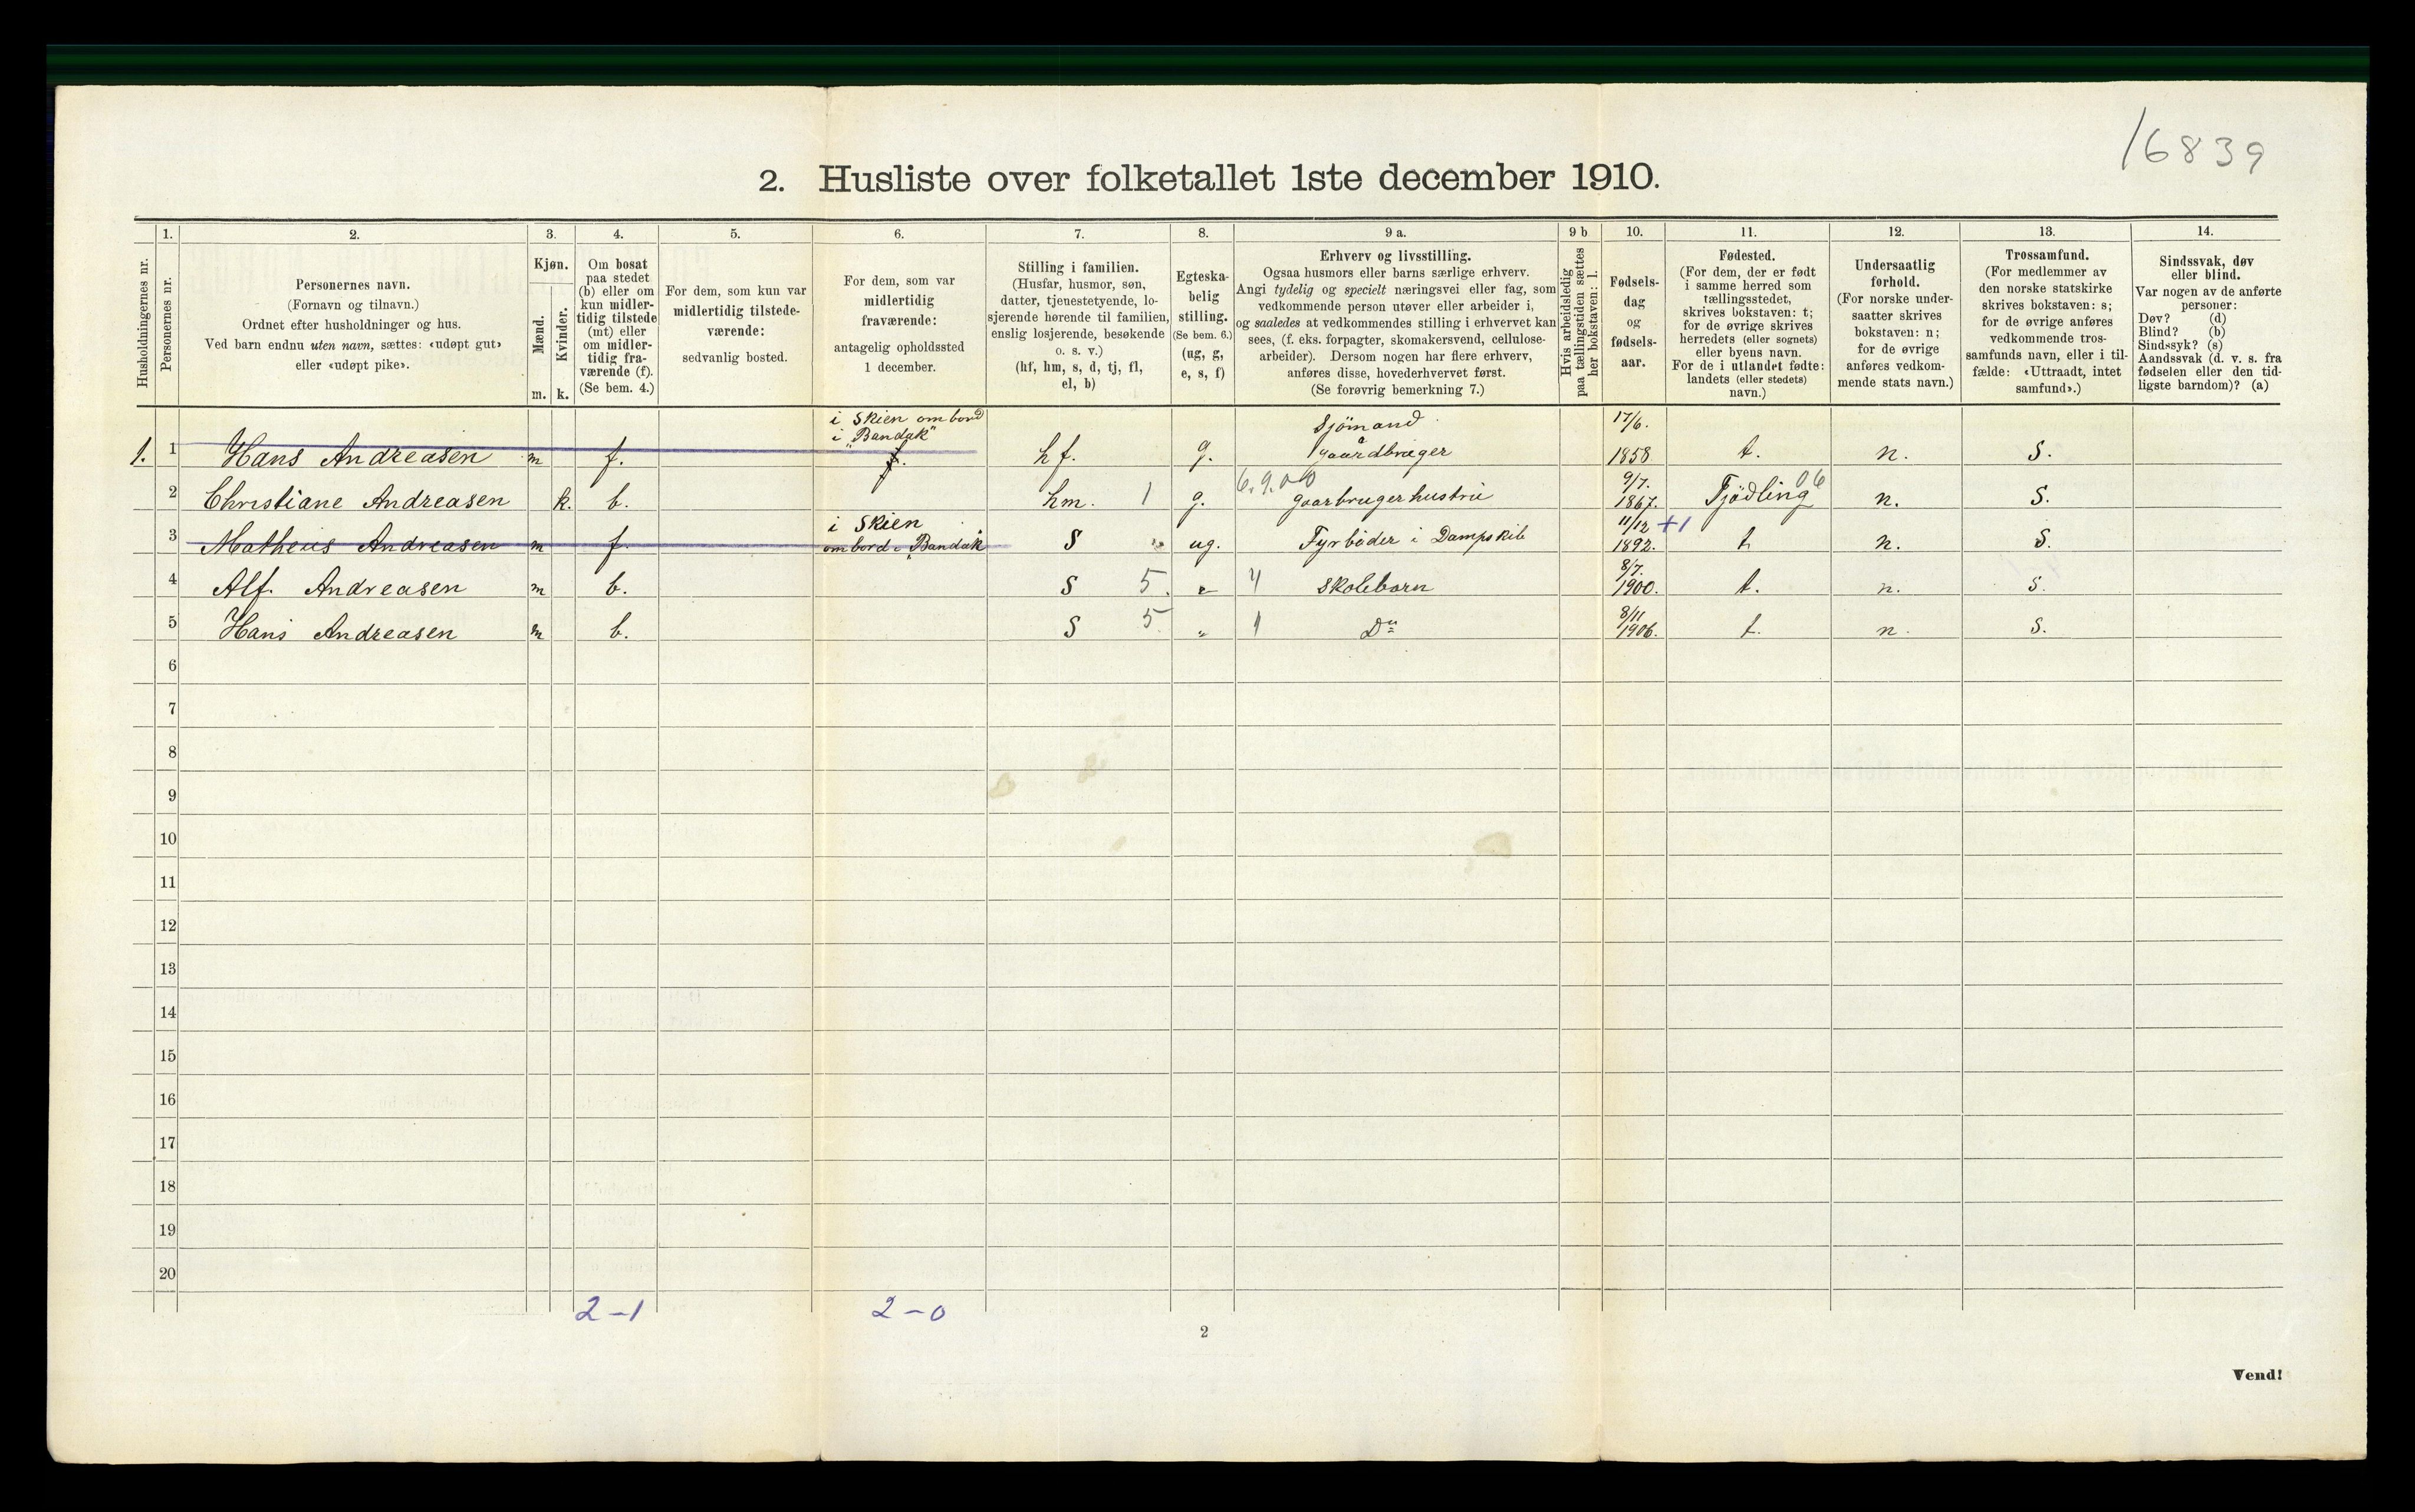 16839
2. Husliste over folketallet 1ste december 1910.
Husholdningernes nr.
1.
Personernes nr.
2.
Personernes navn.
(Fornavn og tilnavn.)
Ordnet efter husholdninger og hus.
Ved barn endnu uten navn, sættes: «udøpt gut»
eller «udøpt pike».
3.
Kjøn.
Mænd.
Kvinder.
m. k.
4.
Om bosat
paa stedet
(b) eller om
kun midler-
tidig tilstede
(mt) eller
om midler-
tidig fra-
værende (f).
(Se bem. 4.)
5.
For dem, som kun var
midlertidig tilstede-
værende:
sedvanlig bosted.
6.
For dem, som var
midlertidig
fraværende:
antagelig opholdssted
1 december.
7.
Stilling i familien.
(Husfar, husmor, søn,
datter, tjenestetyende, lo-
sjerende hørende til familien,
enslig losjerende, besøkende
o. s. v.)
(hf, hm, s, d, tj, fl,
el, b)
8.
Egteska-
belig
stilling.
(Se bem. 6.)
(ug, g,
e, s, f)
9 a.
Erhverv og livsstilling.
Ogsaa husmors eller barns særlige erhverv.
Angi tydelig og specielt næringsvei eller fag, som
vedkommende person utøver eller arbeider i,
og saaledes at vedkommendes stilling i erhvervet kan
sees, (f. eks. forpagter, skomakersvend, cellulose-
arbeider). Dersom nogen har flere erhverv,
anføres disse, hovederhvervet først.
(Se forøvrig bemerkning 7.)
9 b
Hvis arbeidsledig
paa tællingstiden sættes
her bokstaven: l.
10.
Fødsels-
dag
og
fødsels-
aar.
11.
Fødested.
(For dem, der er født
i samme herred som
tællingsstedet,
skrives bokstaven: t;
for de øvrige skrives
herredets (eller sognets)
eller byens navn.
For de i utlandet fødte:
landets (eller stedets)
navn.)
12.
Undersaatlig
forhold.
(For norske under-
saatter skrives
bokstaven: n;
for de øvrige
anføres vedkom-
mende stats navn.)
13.
Trossamfund.
(For medlemmer av
den norske statskirke
skrives bokstaven: s;
for de øvrige anføres
vedkommende tros-
samfunds navn, eller i til-
fælde: «Uttraadt, intet
samfund».)
14.
Sindssvak, døv
eller blind.
Var nogen av de anførte
personer:
Døv? (d)
Blind? (b)
Sindssyk? (s)
Aandssvak (d. v. s. fra
fødselen eller den tid-
ligste barndom)? (a)
i Skien ombord Sjömand 17/6.
i "Bandak"
1. 1 Hans Andreasen m f. f. hf. g. gaardbruger 1858 t. n. S.
6.9.00 9/7. 06
2 Christiane Andreasen k. b. hm. 1 g. gaarbrugerhustru 1867. Tjödling n. S.
i Skien 11/12 +1
3 Matheus Andreasen m f. ombord i "Bandak" S ug. Fyrböder i Dampskib 1892. t n. S.
8/7.
4 Alf. Andreasen m b. S 5. " 4 Skolebarn 1900. t. n. S.
8/11
5 Hans Andreasen m b. S 5 " 1 Do 1906. t. n. S.
6
7
8
9
10
11
12
13
14
15
16
17
18
19
20
2-1 2-0
2
Vend!